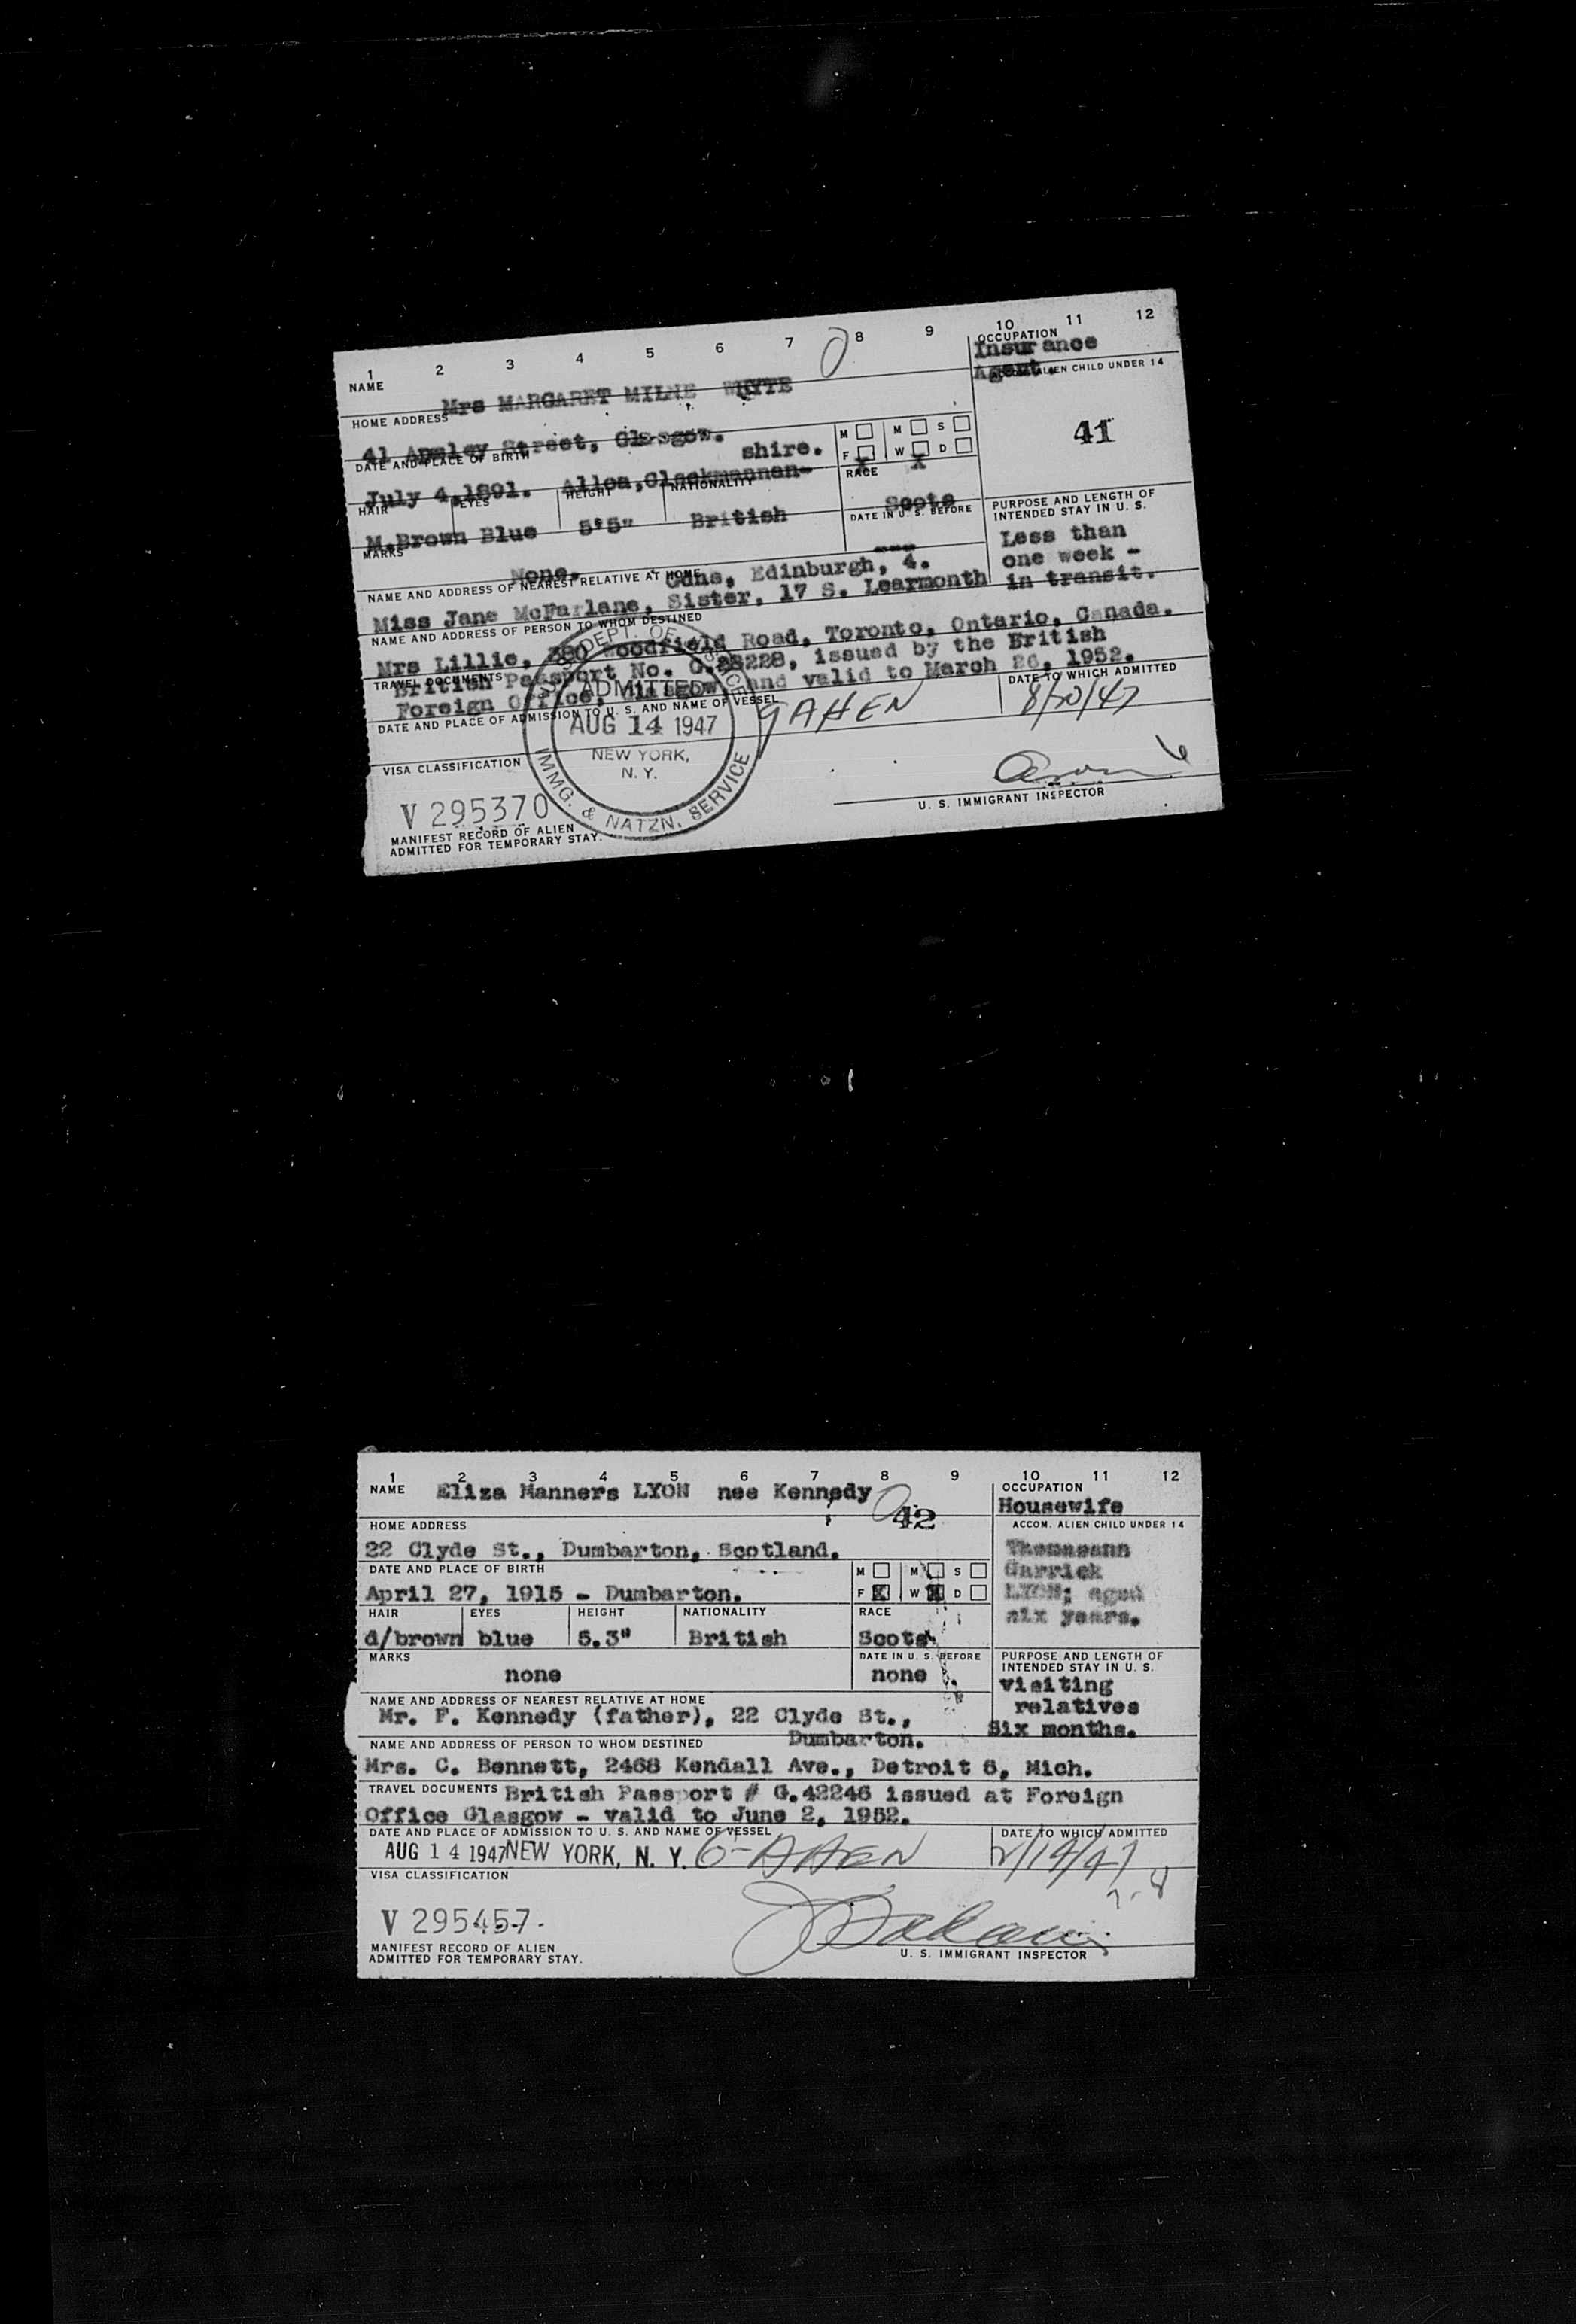 1 2 3 4 5 6 7 8 9 10 11 12
NAME
Mrs MARGARET MILNE WHYTE
OCCUPATION
Insurance
Agent.
ACCOM. ALIEN CHILD UNDER 14
41
HOME ADDRESS
41 Apsley Street, Glasgow.
DATE AND PLACE OF BIRTH
shire.
July 4, 1891. Alloa, Clackmannan-
M F
M S W D
X X
HAIR EYES HEIGHT NATIONALITY
M.Brown Blue 5'5" British
RACE
Scots
MARKS
None.
DATE IN U. S. BEFORE
---
PURPOSE AND LENGTH OF
INTENDED STAY IN U. S.
Less than
one week -
in transit.
NAME AND ADDRESS OF NEAREST RELATIVE AT HOME
Gdns, Edinburgh, 4.
Miss Jane McFarlane, Sister, 17 S. Learmonth
NAME AND ADDRESS OF PERSON TO WHOM DESTINED
Mrs Lillie, 380 Woodfield Road, Toronto, Ontario, Canada.
TRAVEL DOCUMENTS
British Passport No. issued by the British
Foreign Office, Glasgow and valid to March 26, 1952.
DATE AND PLACE OF ADMISSION TO U. S. AND NAME OF VESSEL
DATE TO WHICH ADMITTED
U.S. DEPT. OF JUSTICE
ADMITTED
AUG 14 1947
NEW YORK,
N. Y.
IMMG. & NATZN. SERVICE
GAHEN
8/20/47
VISA CLASSIFICATION
V 295370
U. S. IMMIGRANT INSPECTOR
MANIFEST RECORD OF ALIEN
ADMITTED FOR TEMPORARY STAY.
1 2 3 4 5 6 7 8 9 10 11 12
NAME
Eliza Manners LYON nee Kennedy
42
OCCUPATION
Housewife
HOME ADDRESS
22 Clyde St., Dumbarton, Scotland.
ACCOM. ALIEN CHILD UNDER 14
Garrick
LYON; aged
six years.
DATE AND PLACE OF BIRTH
April 27, 1915 - Dumbarton.
M F X
M S W X D
HAIR EYES HEIGHT NATIONALITY RACE
d/brown blue 5.3" British Scots
MARKS
none
DATE IN U. S. BEFORE
none
PURPOSE AND LENGTH OF
INTENDED STAY IN U. S.
visiting
relatives
Six months.
NAME AND ADDRESS OF NEAREST RELATIVE AT HOME
Mr. F. Kennedy (father), 22 Clyde St.,
Dumbarton.
NAME AND ADDRESS OF PERSON TO WHOM DESTINED
Mrs. C. Bennett, 2468 Kendall Ave., Detroit 6, Mich.
TRAVEL DOCUMENTS British Passport # G.42246 issued at Foreign
Office Glasgow - valid to June 2, 1952.
DATE AND PLACE OF ADMISSION TO U. S. AND NAME OF VESSEL
DATE TO WHICH ADMITTED
AUG 14 1947 NEW YORK, N. Y. G-AHEN
VISA CLASSIFICATION
V 295457
U. S. IMMIGRANT INSPECTOR
MANIFEST RECORD OF ALIEN
ADMITTED FOR TEMPORARY STAY.